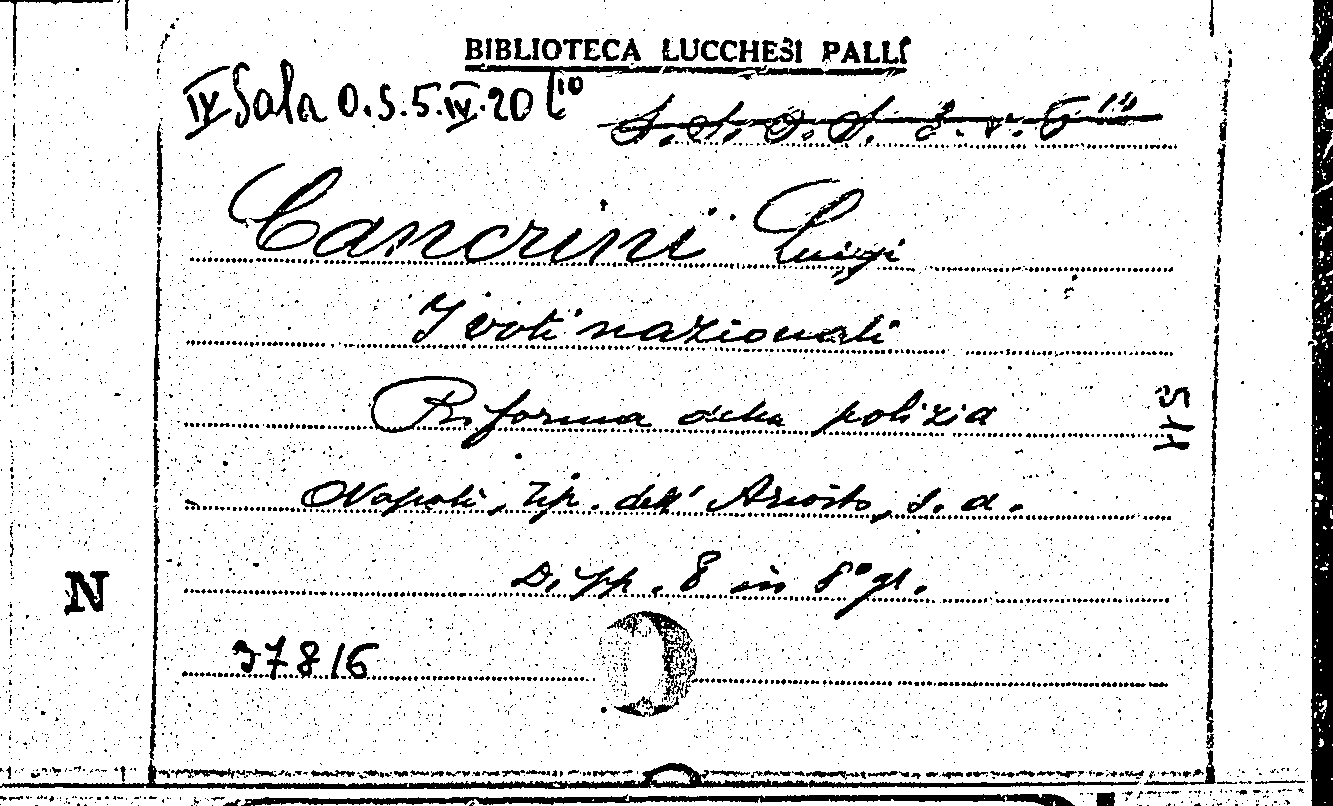 BIBLIOTECA LUCCHESI PALLI
IV Sala O.S.5.IV.20 (10
Cancrini Luigi
I voti nazionali
Riforma della polizia
Napoli, Tip. dell' Ariosto, s. d.
Di pp. 8 in 8° gr.
N
37816